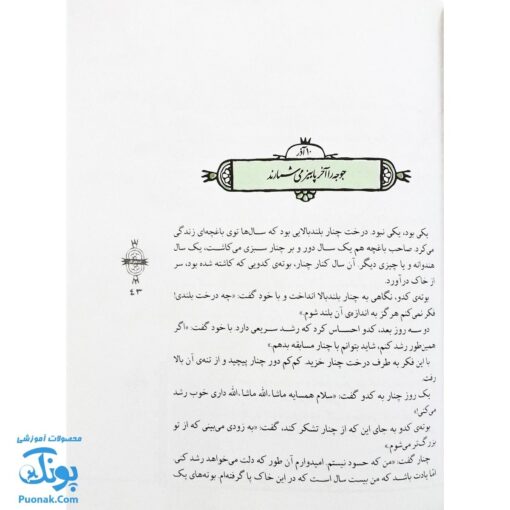 ۱۰ آذر
جوجه را آخر پاییز می‌شمارند
یکی بود، یکی نبود. درخت چنار بلندبالایی بود که سال‌ها توی باغچه‌ای زندگی
می‌کرد. صاحب باغچه هم یک سال دور و بر چنار سبزی می‌کاشت، یک سال
هندوانه و یا چیزی دیگر. آن سال کنار چنار، بوته‌ی کدویی که کاشته شده بود، سر
از خاک درآورد.
بوته‌ی کدو، نگاهی به چنار بلندبالا انداخت و با خود گفت: «چه درخت بلندی!
فکر نمی‌کنم هرگز به اندازه‌ی آن بلند شوم.»
دو سه روز بعد، کدو احساس کرد که رشد سریعی دارد. با خود گفت: «اگر
همین‌طور رشد کنم، شاید بتوانم با چنار مسابقه بدهم.»
با این فکر به طرف درخت چنار خزید. کم‌کم دور چنار پیچید و از تنه‌ی آن بالا
رفت.
یک روز چنار به کدو گفت: «سلام همسایه ماشا.الله ماشا.الله داری خوب رشد
می‌کنی!»
بوته‌ی کدو به جای این که از چنار تشکر کند، گفت: «به زودی می‌بینی که از تو
بزرگ‌تر می‌شوم.»
چنار گفت: «من که حسود نیستم. امیدوارم آن طور که دلت می‌خواهد رشد کنی.
امّا یادت باشد که من بیست سال است که در این خاک پا گرفته‌ام. بوته‌های یک
۴۳
محصولات آموزشی
پونک
Puonak.Com